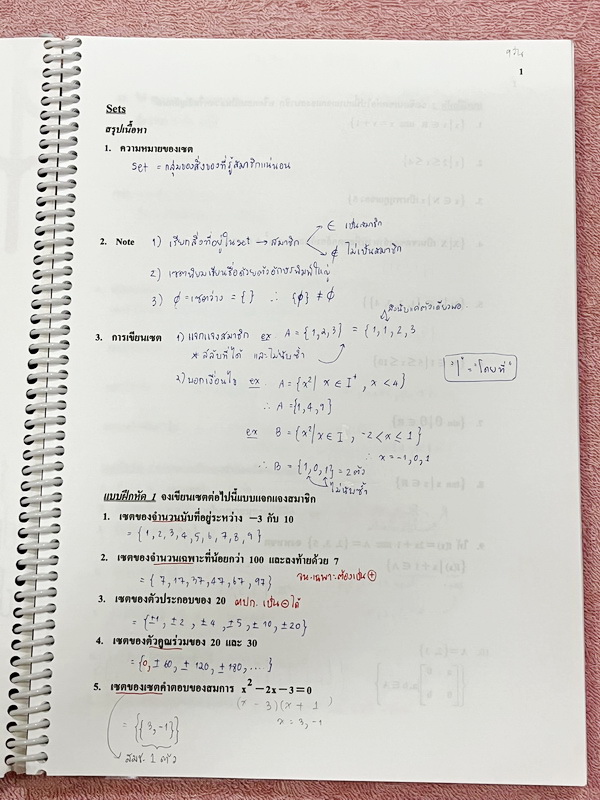 1
Sets
สรุปเนื้อหา
1. ความหมายของเซต
set = กลุ่มของสิ่งของที่รู้สมาชิกแน่นอน
2. Note 1) เรียกสิ่งที่อยู่ในset → สมาชิก
∈ เป็นสมาชิก
∉ ไม่เป็นสมาชิก
2) เซตนิยมเขียนชื่อด้วยตัวอักษรพิมพ์ใหญ่
3) ∅ = เซตว่าง = { } ∴ {∅} ≠ ∅
3. การเขียนเซต 1) แจกแจงสมาชิก ex A = {1,2,3} = {1,1,2,3
* สลับที่ได้ และไม่นับซ้ำ
"|" = "โดยที่"
2) บอกเงื่อนไข ex A = {x²| x ∈ I⁺, x < 4}
∴ A = {1,4,9}
ex B = {x²| x ∈ I, -2 < x ≤ 1}
∴ x = -1,0,1
∴ B = {1,0,1} = 2 ตัว
ไม่นับซ้ำ
แบบฝึกหัด 1 จงเขียนเซตต่อไปนี้แบบแจกแจงสมาชิก
1. เซตของจำนวนนับที่อยู่ระหว่าง −3 กับ 10
= {1,2,3,4,5,6,7,8,9}
2. เซตของจำนวนเฉพาะที่น้อยกว่า 100 และลงท้ายด้วย 7
= {7,17,37,47,67,97} จน.เฉพาะต้องเป็น ⊕
3. เซตของตัวประกอบของ 20 ตปก. เป็น ⊖ ได้
= {±1, ±2, ±4, ±5, ±10, ±20}
4. เซตของตัวคูณร่วมของ 20 และ 30
= {0, ±60, ±120, ±180, ...}
5. เซตของเซตคำตอบของสมการ x² − 2x − 3 = 0
(x - 3)(x + 1)
= {{3,-1}} x = 3, -1
สมช. 1 ตัว